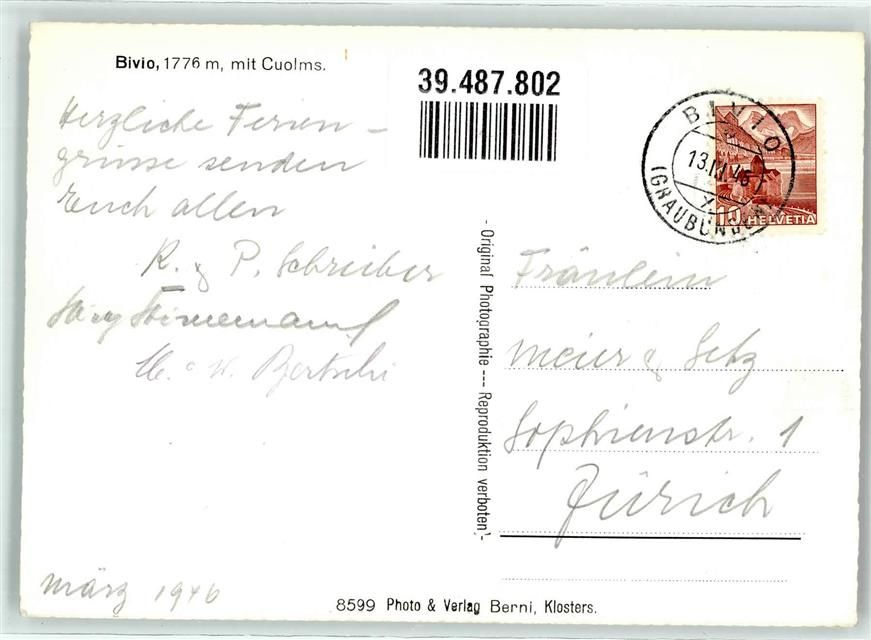 Bivio, 1776 m, mit Cuolms.
39.487.802
Herzliche Ferien-
grüsse senden
Euch allen
R. & P. Schreiber
W. Bertschi
März 1946
8599 Photo & Verlag Berni, Klosters.
- Original Photographie --- Reproduktion verboten! -
BIVIO
13.III.46
(GRAUBÜNDEN)
10 HELVETIA
Fräulein
Meier & Setz
Sophienstr. 1
Zürich